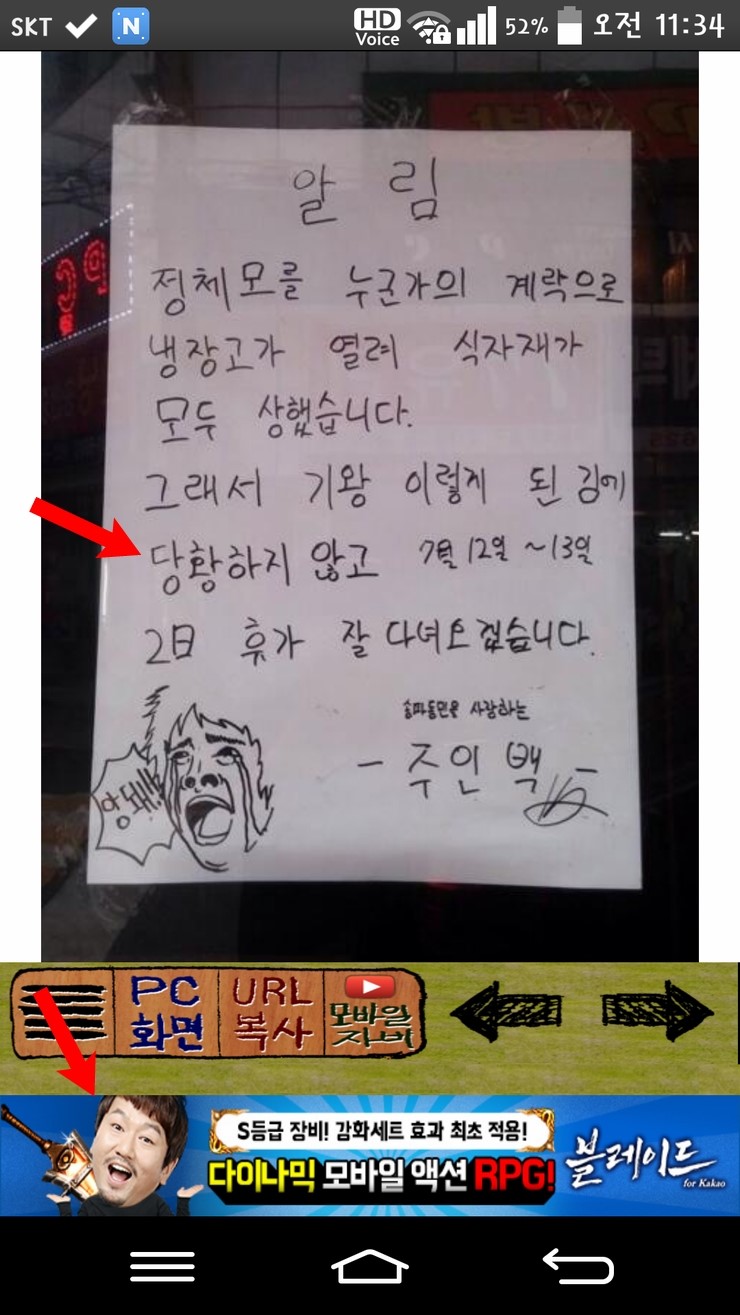 SKT N HD Voice 52% 오전 11:34
알 림
정체모를 누군가의 계락으로
냉장고가 열려 식자재가
모두 상했습니다.
그래서 기왕 이렇게 된 김에
당황하지 않고 7월 12일 ~13일
2日 휴가 잘 다녀오겠습니다.
송파동민을 사랑하는
- 주인 백 -
안돼!!
PC 화면
URL 복사
모바일 자비
S등급 장비! 감화세트 효과 최초 적용!
다이나믹 모바일 액션 RPG!
블레이드
for Kakao